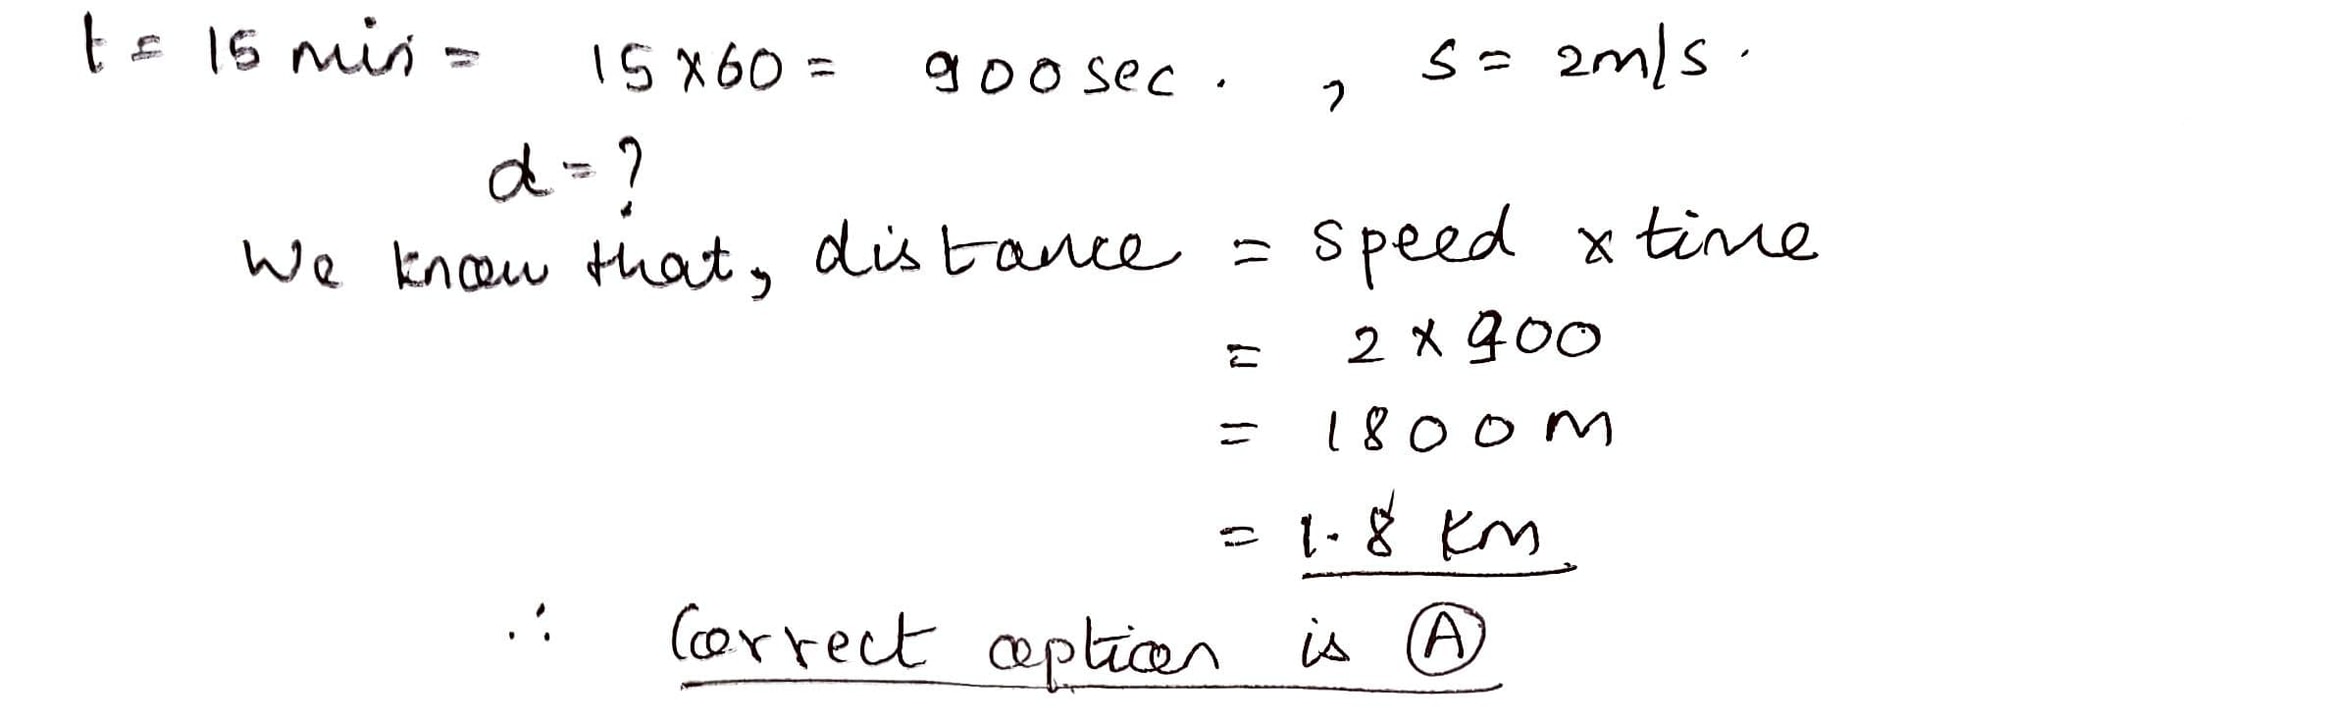 t = 15 min = 15 x 60 = 900 sec. , s = 2m/s.
d = ?
We know that, distance = speed x time
= 2 x 900
= 1800 m
= 1.8 km
∴ Correct option is Ⓐ